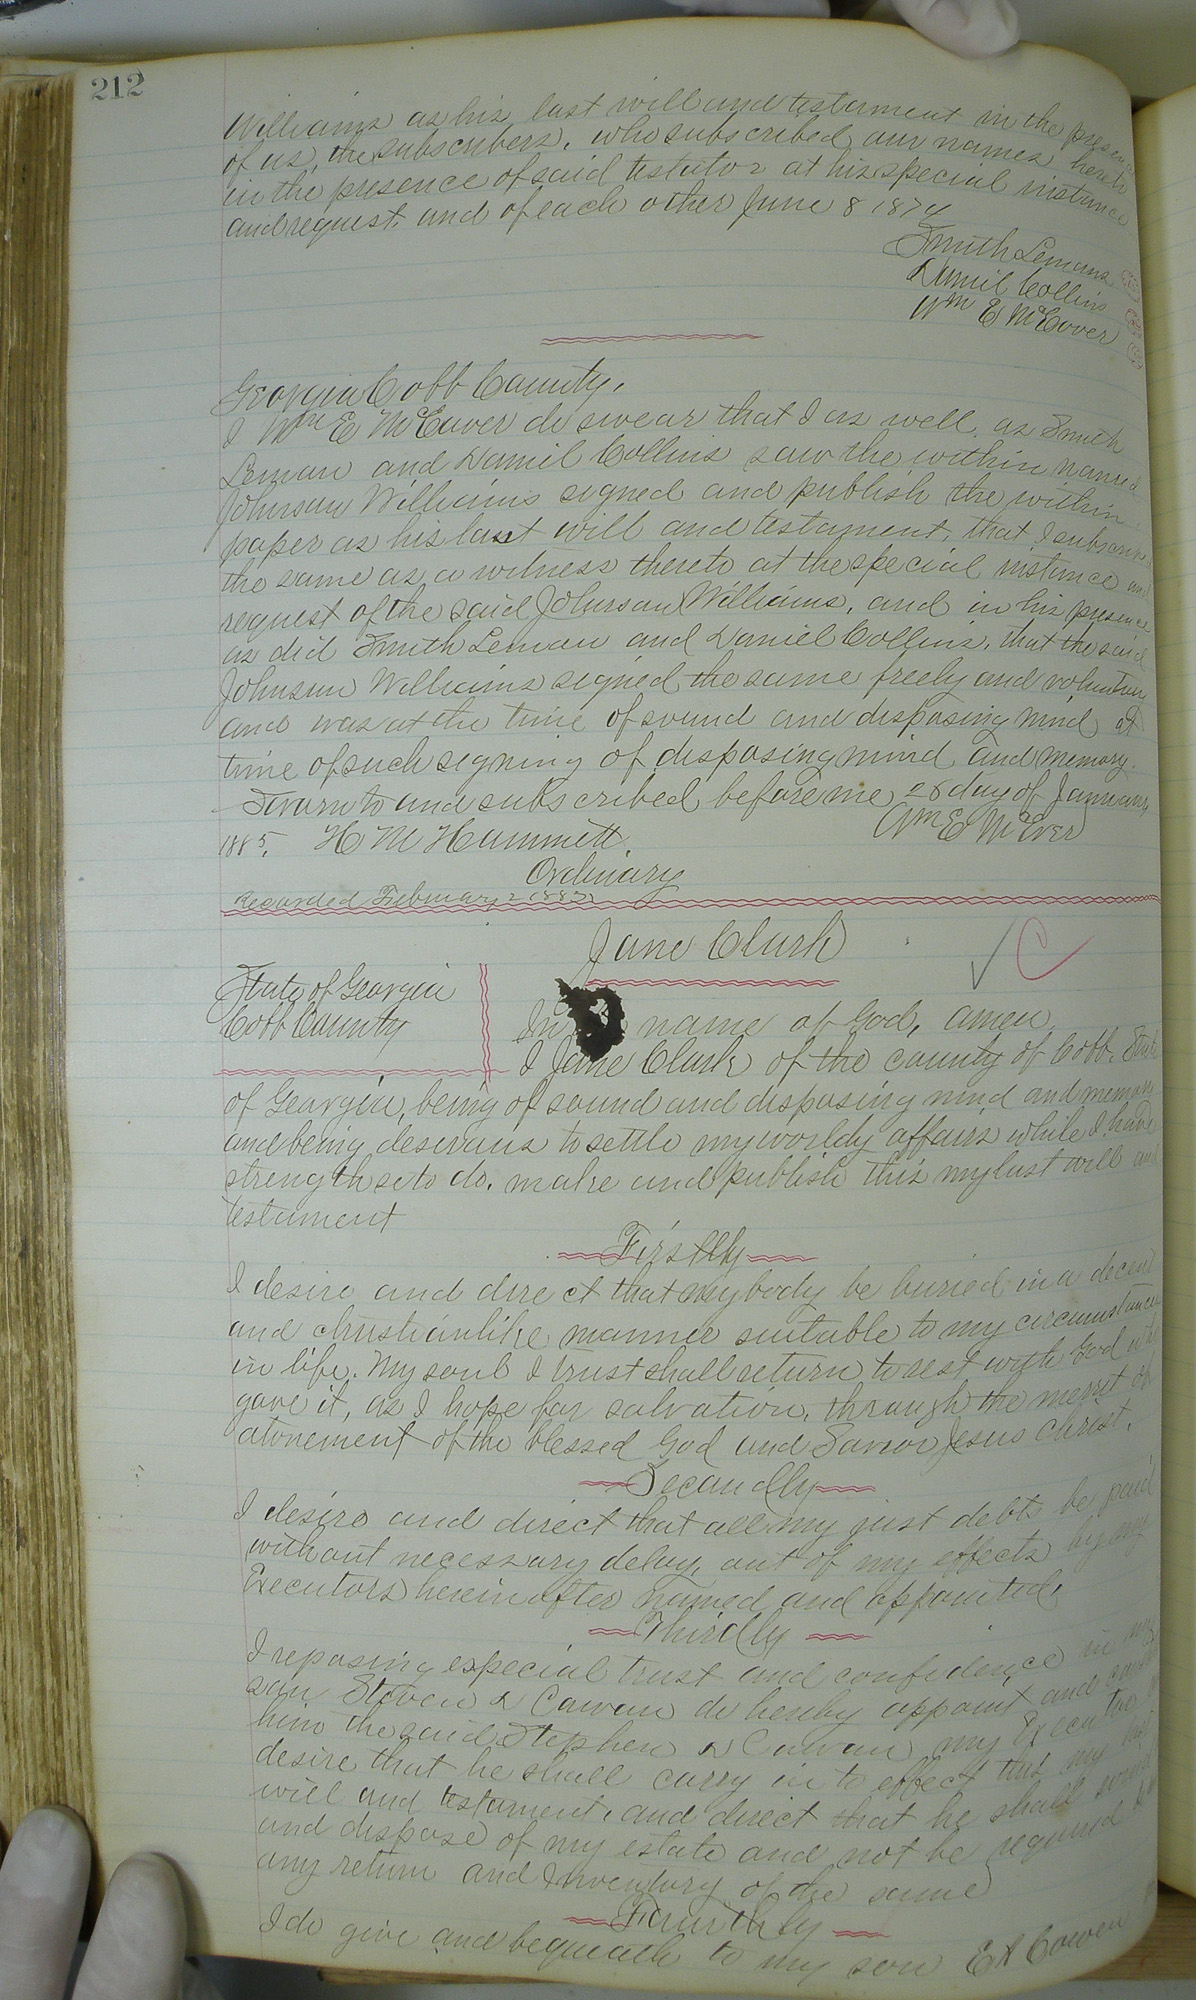 212
Williams as his last will and testament in the presen
of us, the subscribers, who subscribed our names hereto
in the presence of said testator at his special instance
and request, and of each other June 8 1874
Smith Lemans
Daniel Collins
Wm E McEover
Georgia Cobb County.
I Wm E McEuver do swear that I as well as Smith
Leman and Daniel Collins saw the within named
Johnson Williams signed and publish the within
paper as his last will and testament, that I subscribe
the same as a witness thereto at the special instance and
request of the said Johnson Williams, and in his presence
as did Smith Leman and Daniel Collins, that the said
Johnson Williams signed the same freely and voluntary
and was at the time of sound and disposing mind at
time of such signing of disposing mind and memory.
Sworn to and subscribed before me 28 day of January
1885. H M Hammett Wm E McEver
Ordinary
Recorded February 2 1885
Jane Clark
C
State of Georgia
Cobb County
In name of God, amen.
I Jane Clark of the county of Cobb. State
of Georgia, being of sound and disposing mind and memory
and being desirous to settle my worldy affairs while I have
strength so to do. make and publish this my last will and
testament
Firstly
I desire and direct that my body be buried in a decent
and christianlike manner suitable to my circumstances
in life. My soul I trust shall return to rest with God who
gave it, as I hope for salvation, through the meret of
atonement of the blessed God and Savior Jesus Christ.
Secondly
I desire and direct that all my just debts be paid
without necessary delay, out of my effects by my
Executors hereinafter named and appointed,
Thirdly
I reposing especial trust and confidence in my
son Steven D Cowan do hereby appoint and
him the said Stephen D Cowan my Executor
desire that he shall carry in to effect this my last
will and testament, and direct that he shall
and dispose of my estate and not be required
any return and Inventory of the same
Fourthly
I do give and bequeath to my son E A Cowen